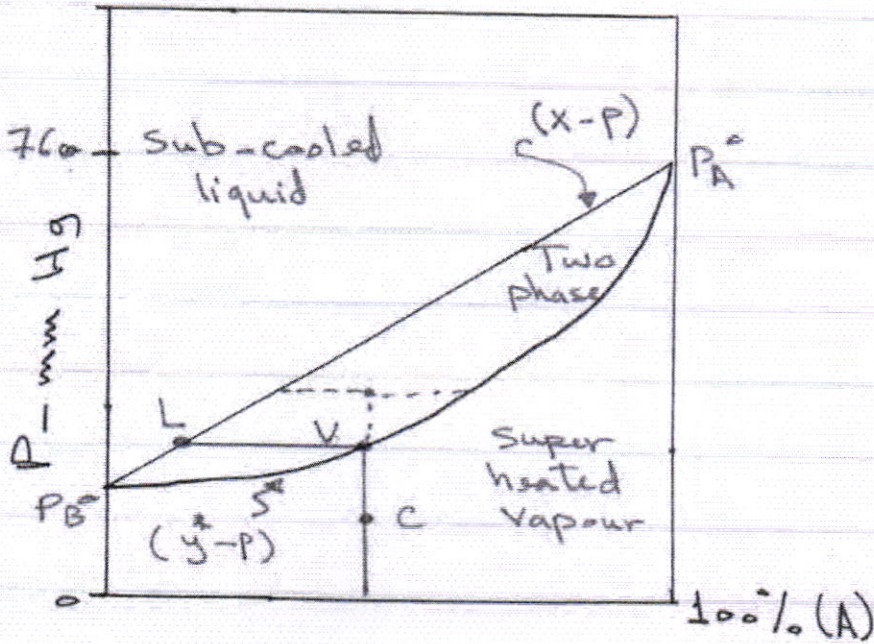 760
Sub-cooled
liquid
(x-P)
PA°
P-mm Hg
Two
phase
L
V
PB°
(y*-P)
C
Super
heated
Vapour
0
100% (A)